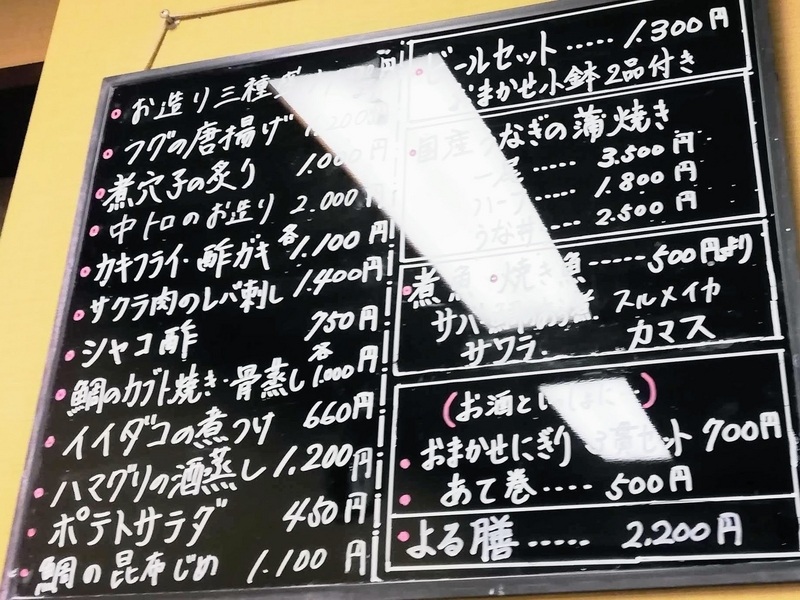 お造り三種盛
フグの唐揚げ 1.200円
煮穴子の炙り 1.000円
中トロのお造り 2.000円
カキフライ・酢ガキ 各1.100円
サクラ肉のレバ刺し 1.400円
シャコ酢 750円
鯛のカブト焼き・骨蒸し 各1.000円
イイダコの煮つけ 660円
ハマグリの酒蒸し 1.200円
ポテトサラダ 450円
鯛の昆布じめ 1.100円
ビールセット ..... 1.300円
おまかせ小鉢2品付き
国産うなぎの蒲焼き
一尾 ..... 3.500円
ハーフ ..... 1.800円
うな丼 ..... 2.500円
煮魚・焼き魚 ------ 500円より
サバ スルメイカ
サワラ カマス
(お酒と
おまかせにぎり 3貫セット 700円
あて巻 .... 500円
よる膳 ..... 2.200円